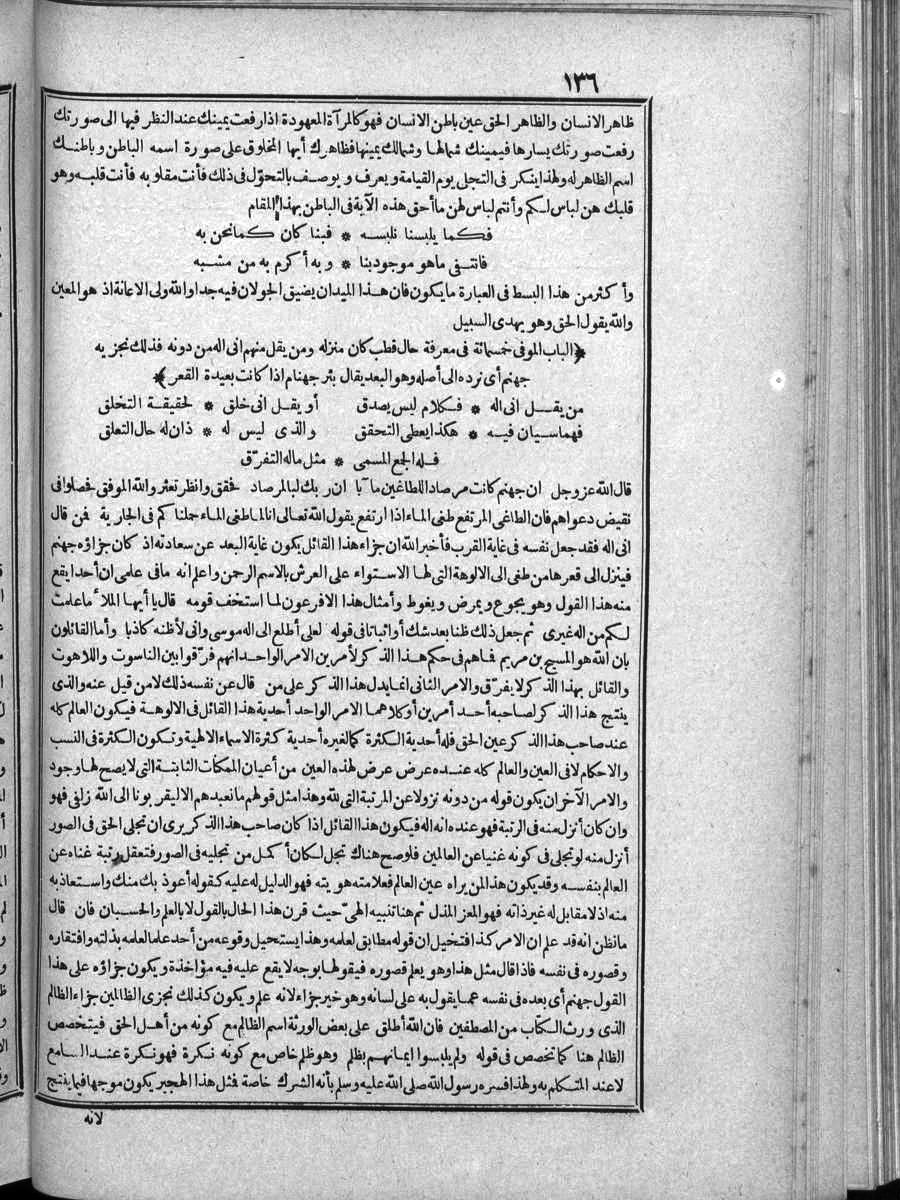 ١٣٦
ظاهر الانسان والظاهر الحق عين باطن الانسان فهو كالمرآة المعهودة اذا رفعت يمينك عند النظر فيها الى صورتك
رفعت صورتك يسارها فيمينك شمالها وشمالك يمينها فظاهرك أيها المخلوق على صورة اسمه الباطن وباطنك
اسم الظاهر له ولهذا ينكر فى التجلى يوم القيامة ويعرف ويوصف بالتحوّل فى ذلك فأنت مقلوبه فأنت قلبه وهو
قلبك هن لباس لكم وأنتم لباس لهن ما أحق هذه الآية فى الباطن بهذا المقام
فكما يلبسنا نلبسه * فبنا كان كما نحن به
فانتفى ما هو موجود بنا * وبه أكرم به من مشبه
وأكثر من هذا البسط فى العبارة ما يكون فان هذا الميدان يضيق الجولان فيه جدا والله ولى الاعانة اذ هو المعين
والله يقول الحق وهو يهدى السبيل
﴿الباب الموفى خمسمائة فى معرفة حال قطب كان منزله ومن يقل منهم انى اله من دونه فذلك نجزيه
جهنم أى نرده الى أصله وهو البعد يقال بئر جهنام اذا كانت بعيدة القعر﴾
من يقل انى اله * فكلام ليس يصدق أو يقل انى خلق * لحقيقة التخلق
فهما سيان فيه * هكذا يعطى التحقق والذى ليس له * ذان له حال التعلق
فله الجمع المسمى * مثل ماله التفرّق
قال الله عز وجل ان جهنم كانت مرصادا للطاغين مآبا ان ربك لبالمرصاد فحقق وانظر تعثر والله الموفق فحصلوا فى
نقيض دعواهم فان الطاغى المرتفع طغى الماء اذا ارتفع يقول الله تعالى انا لما طغى الماء حملناكم فى الجارية فمن قال
انى اله فقد جعل نفسه فى غاية القرب فأخبر الله ان جزاء هذا القائل يكون غاية البعد عن سعادته اذ كان جزاؤه جهنم
فينزل الى قعرها من طغى الى الالوهة التى لها الاستواء على العرش بالاسم الرحمن واعلم انه ما فى علمى ان أحدا يقع
منه هذا القول وهو يجوع ويمرض ويغوط وأمثال هذا الا فرعون لما استخف قومه قال يا أيها الملأ ما علمت
لكم من اله غيرى ثم جعل ذلك ظنا بعد شك أو اثباتا فى قوله لعلى أطلع الى اله موسى وانى لأظنه كاذبا وأما القائلون
بان الله هو المسيح بن مريم فاهم فى حكم هذا الذكر لأمرين الامر الواحد انهم فرّقوا بين الناسوت واللاهوت
والقائل بهذا الذكر لا يفرّق والامر الثانى انما يدل هذا الذكر على من قال عن نفسه ذلك لا من قيل عنه والذى
ينتج هذا الذكر لصاحبه أحد أمرين أو كلاهما الامر الواحد أحدية هذا القائل فى الالوهة فيكون العالم كله
عند صاحب هذا الذكر عين الحق فله أحدية الكثرة كما لغيره أحدية كثرة الاسماء الالهية وتكون الكثرة فى النسب
والاحكام لا فى العين والعالم كله عنده عرض عرض لهذه العين من أعيان الممكنات الثابتة التى لا يصح لها وجود
والامر الآخر ان يكون قوله من دونه نزولا عن المرتبة التى لله وهذا مثل قولهم ما نعبدهم الا ليقربونا الى الله زلفى فهو
وان كان أنزل منه فى الرتبة فهو عنده انه اله فيكون هذا القائل اذا كان صاحب هذا الذكر يرى ان تجلى الحق فى الصور
أنزل منه لو تجلى فى كونه غنيا عن العالمين فلو صح هناك تجل لكان أكمل من تجليه فى الصور فتعقل رتبة غناه عن
العالم بنفسه وقد يكون هذا لمن يراه عين العالم فعلامته هويته فهو الدليل له عليه كقوله أعوذ بك منك واستعاذ به
منه اذ لا مقابل له غير ذاته فهو المعز المذل ثم هنا تنبيه الهىّ حيث قرن هذا الحال بالقول لا بالعلم والحسبان فان قال
ما نظن انه قد علم ان الامر كذا فتخيل ان قوله مطابق لعلمه وهذا يستحيل وقوعه من أحد علما لعلمه بذلته وافتقاره
وقصوره فى نفسه فاذا قال مثل هذا وهو يعلم قصوره فيقولها بوجه لا يقع عليه فيه مؤاخذة ويكون جزاؤه على هذا
القول جهنم أى بعده فى نفسه عما يقول به على لسانه وهو خير جزاء لانه علم ويكون كذلك نجزى الظالمين جزاء الظالم
الذى ورث الكتاب من المصطفين فان الله أطلق على بعض الورثة اسم الظالم مع كونه من أهل الحق فيتخصص
الظالم هنا كما تخصص فى قوله ولم يلبسوا ايمانهم بظلم وهو ظلم خاص مع كونه نكرة فهو نكرة عند السامع
لا عند المتكلم به ولهذا فسره رسول الله صلى الله عليه وسلم بأنه الشرك خاصة فمثل هذا الهجير يكون موجها فيما ينتج
لانه